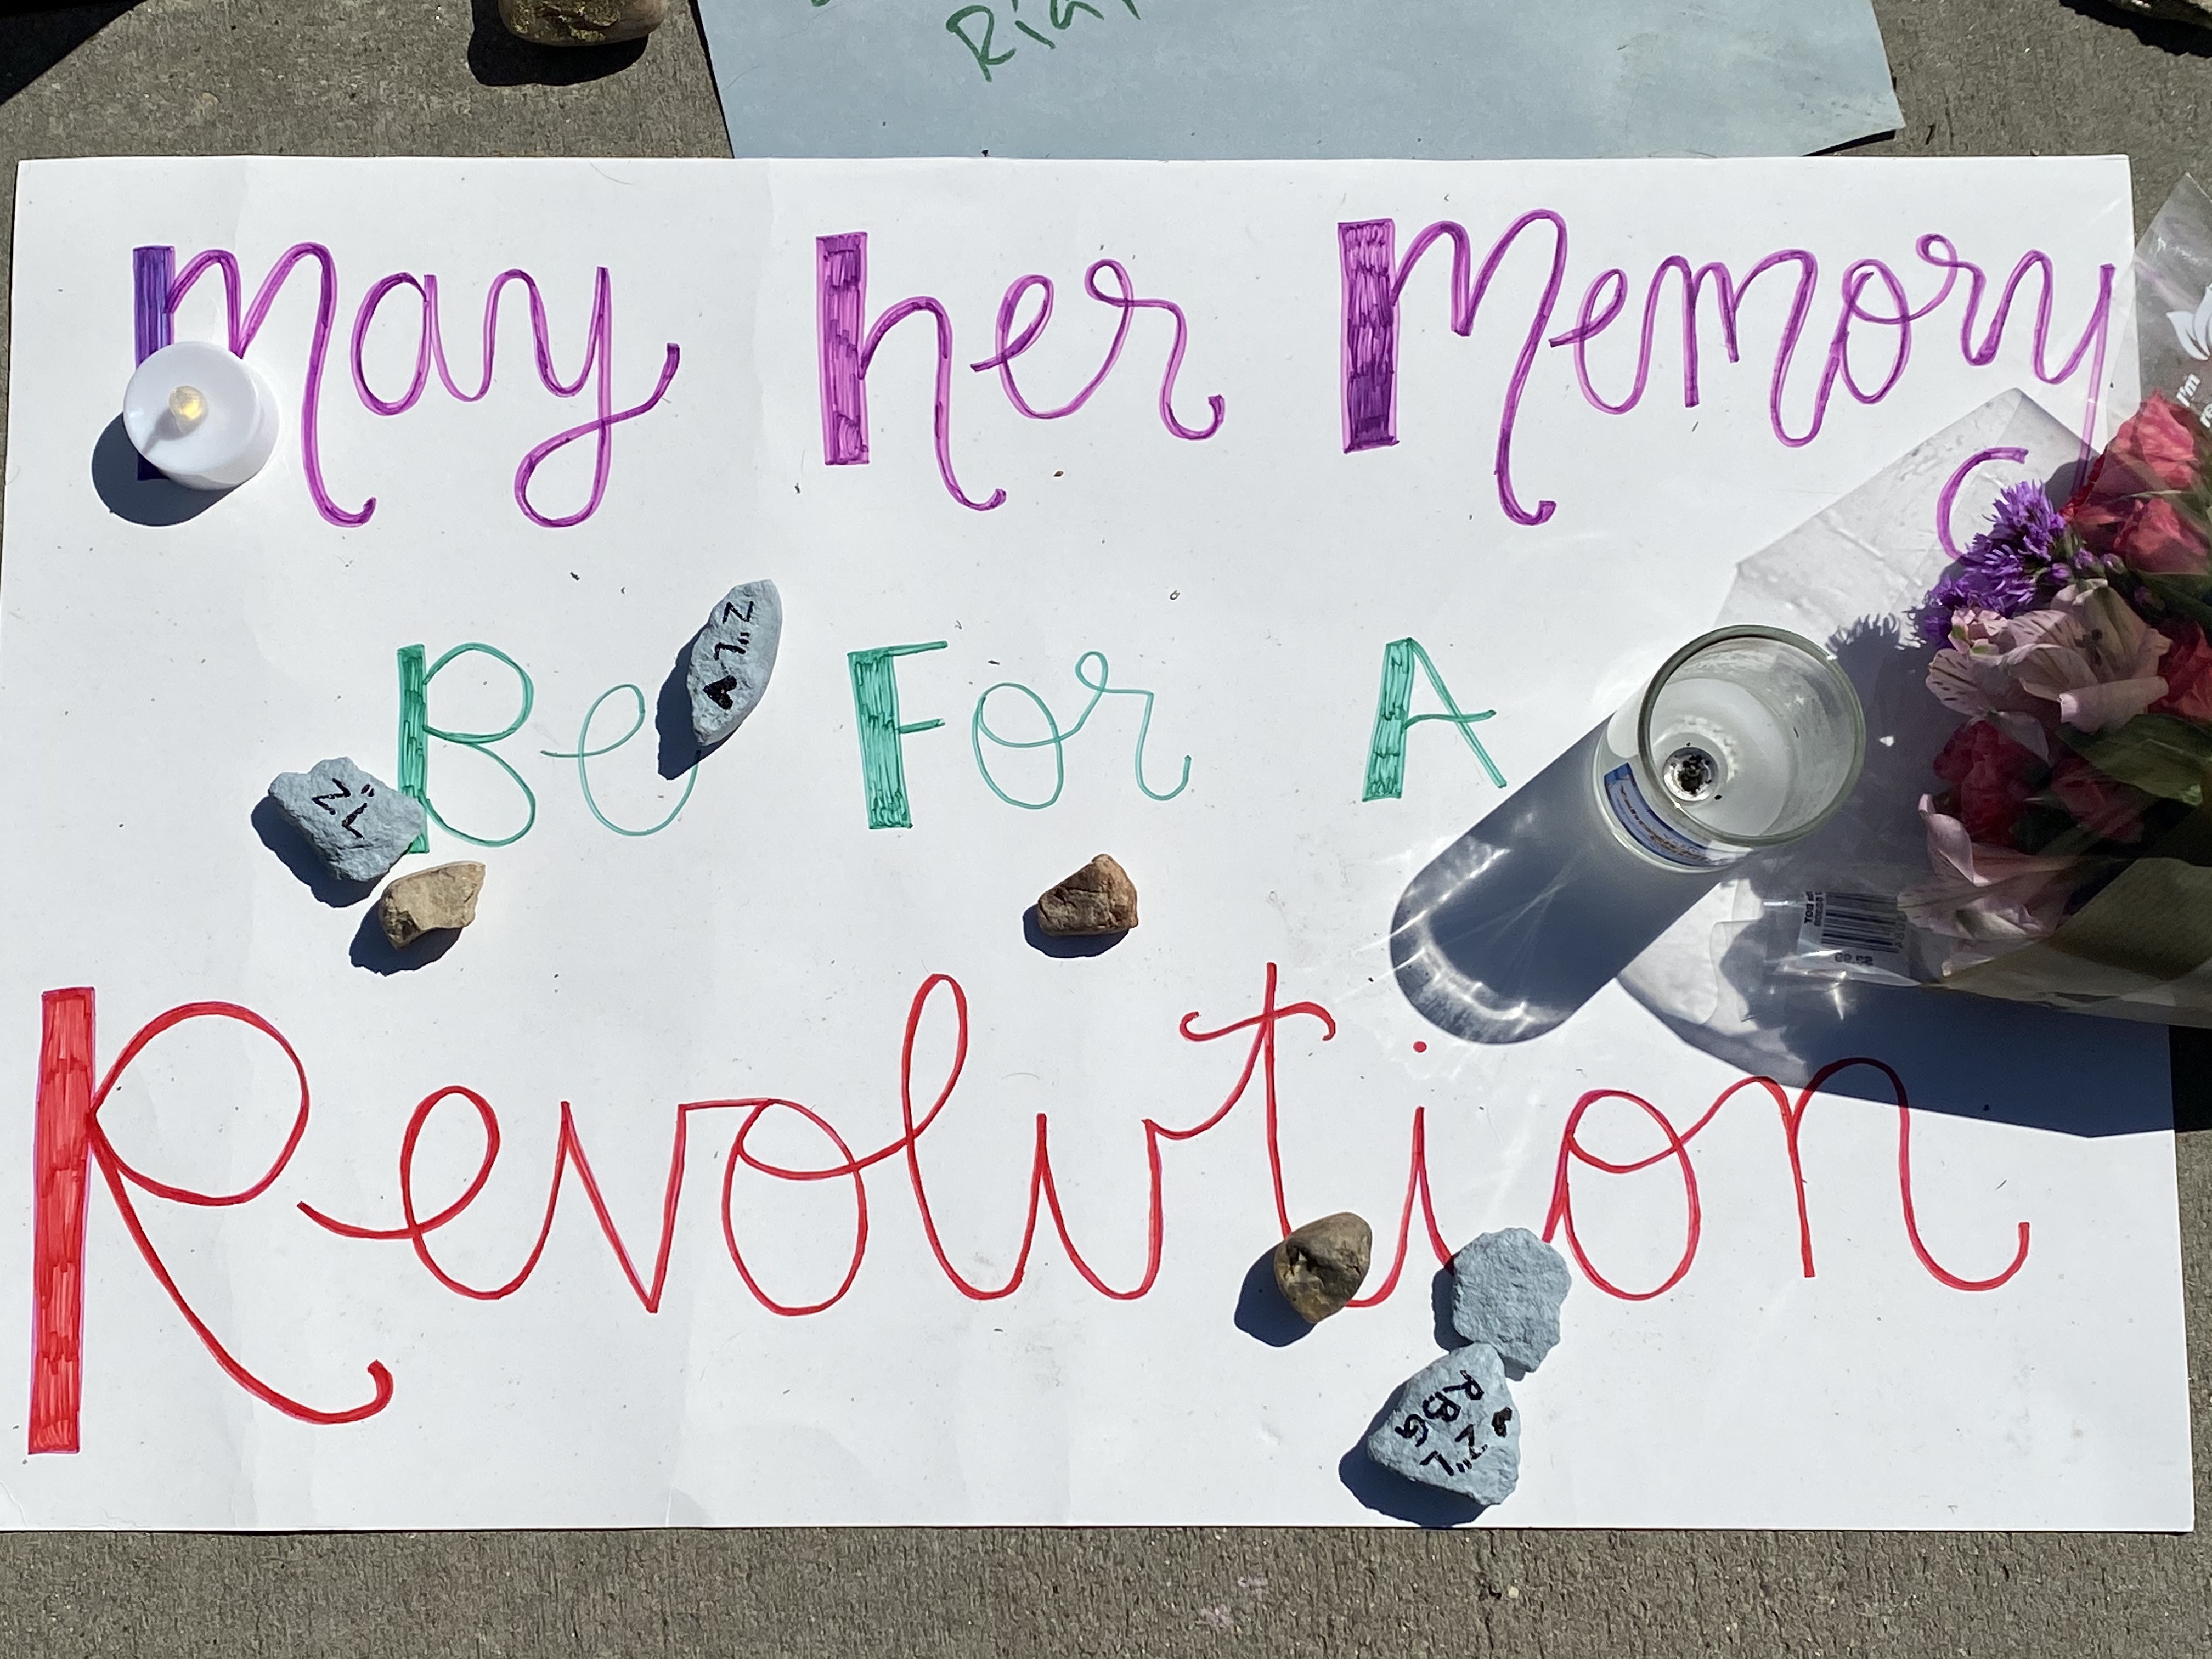 May her Memory
I'm
Be For A
Z"L
Z"L
Revolution
RBG
Z"L